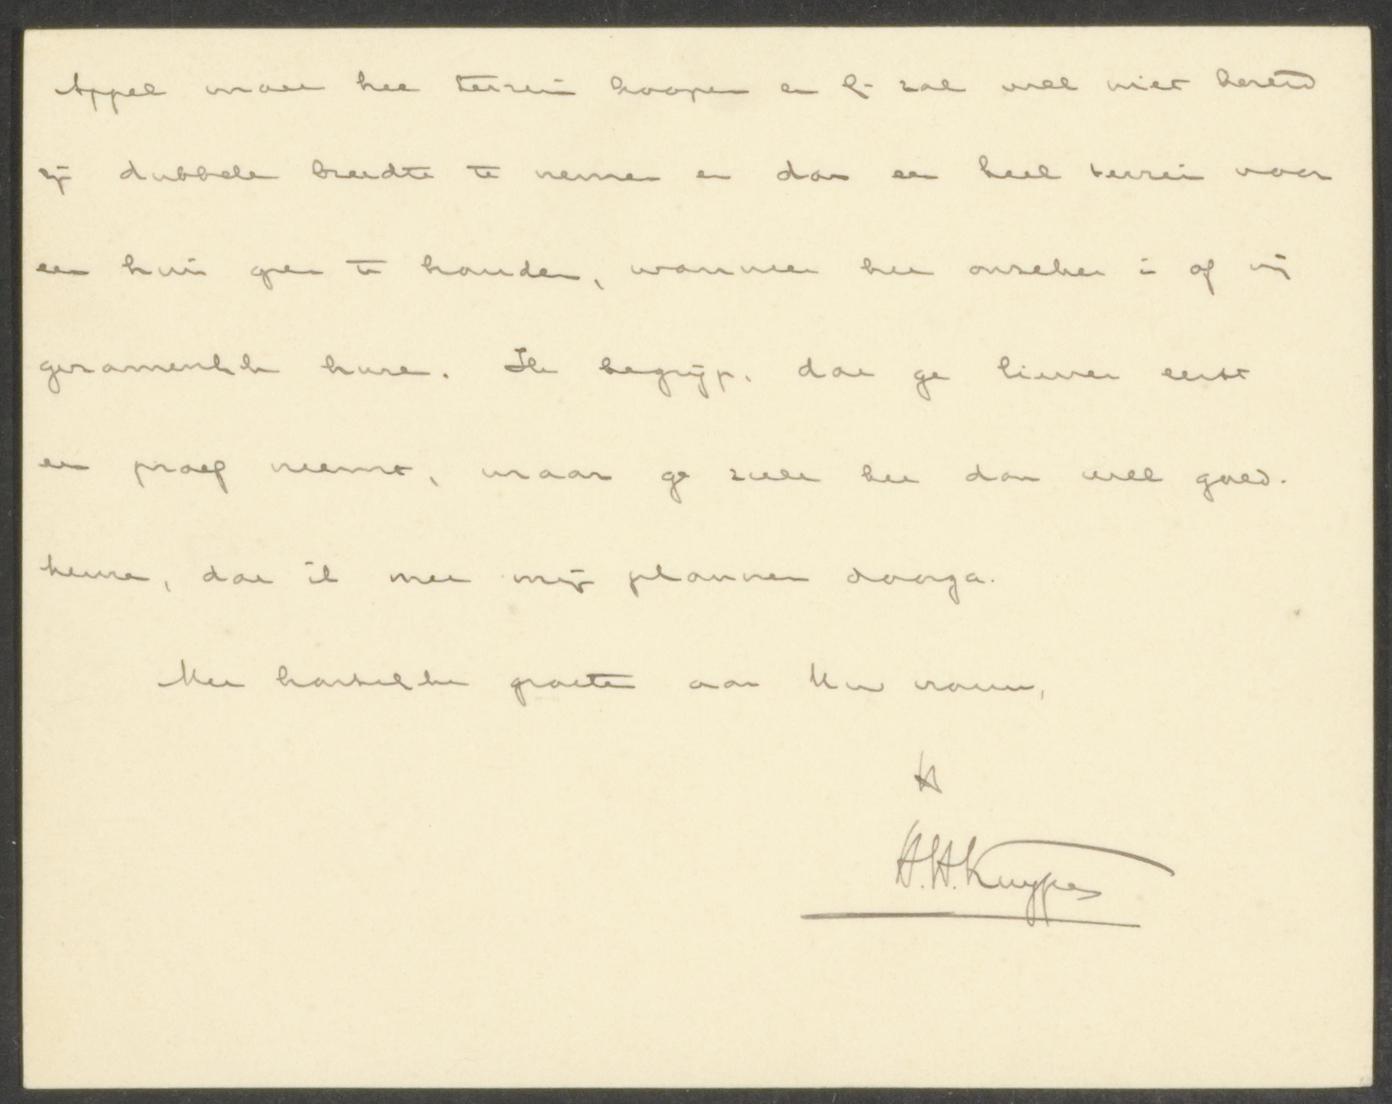 Appel moet het terrein koopen en hij zal wel niet bereid
zijn dubbele breedte te nemen en dan een heel terrein voor
een huis open te houden, wanneer het onzeker is of wij
gezamenlijk huren. Ik begrijp, dat ge liever eerst
een proef neemt, maar ge zult het dan wel goed-
keuren, dat ik met mijn plannen doorga.
Met hartelijke groeten aan Uw vrouw,
H. H. Kuyper